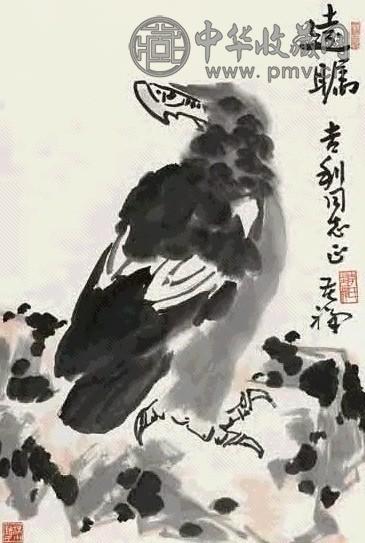 中华收藏网
www.pmv.c
遠瞩
吉利同志正
苦禅